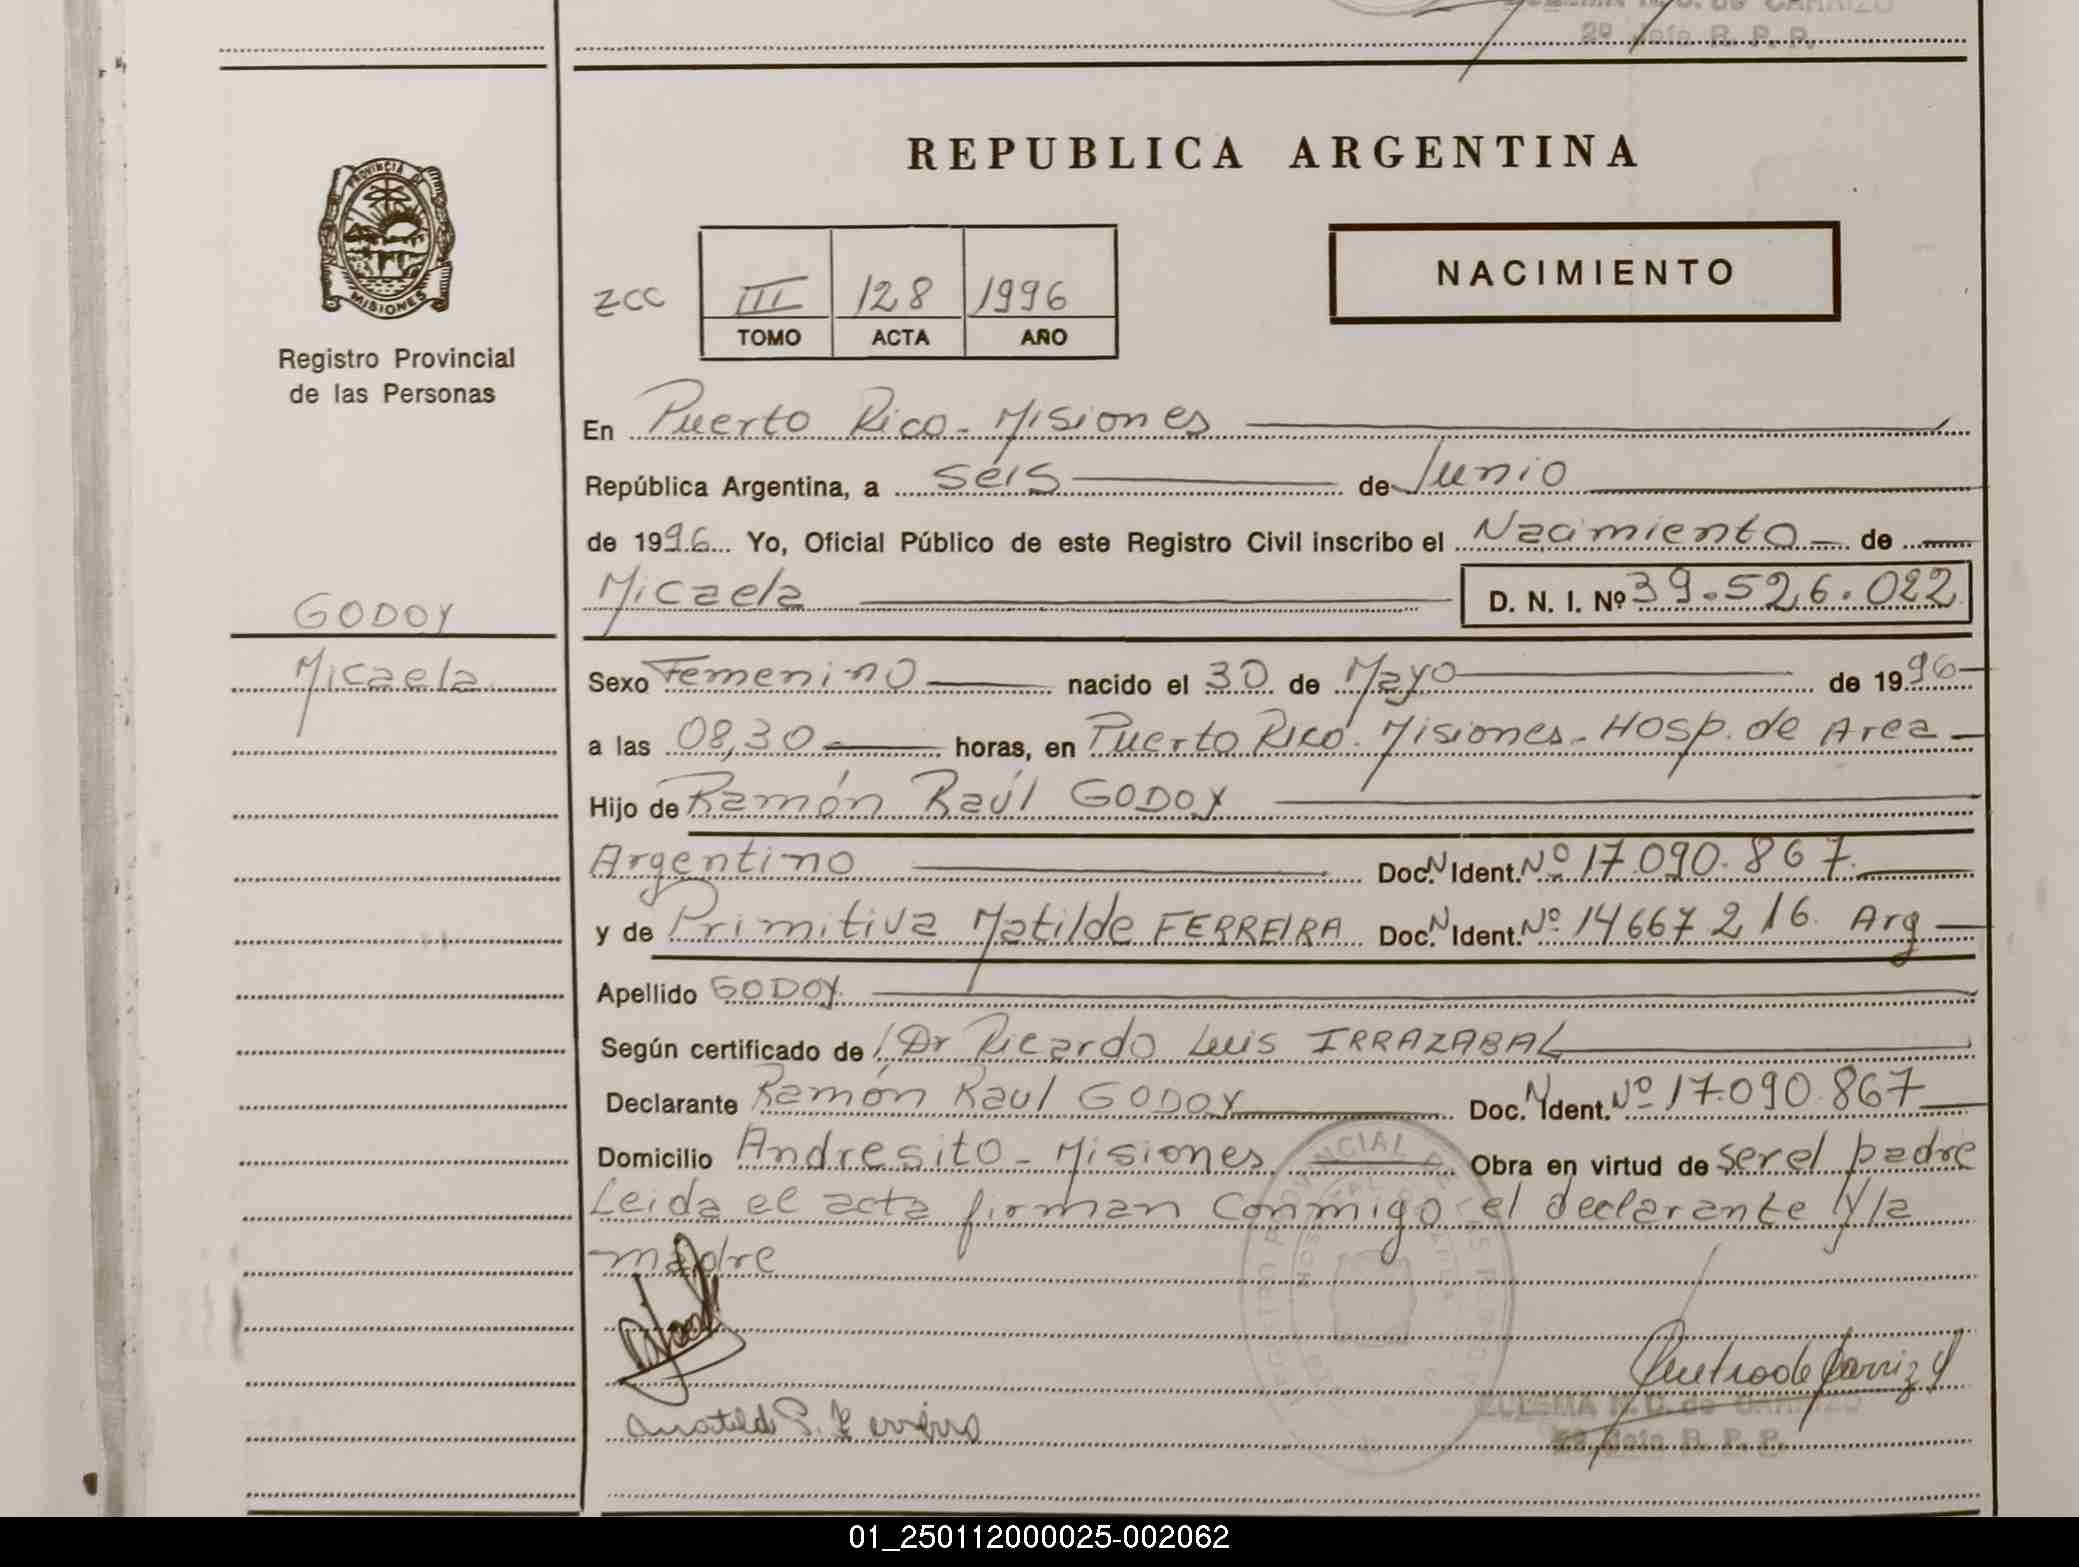 2º Jefe R. P. P.
REPUBLICA ARGENTINA
PROVINCIA DE
MISIONES
Registro Provincial
de las Personas
NACIMIENTO
ZCC III 128 1996
TOMO ACTA AÑO
En Puerto Rico - Misiones
República Argentina, a seis de Junio
de 1996 Yo, Oficial Público de este Registro Civil inscribo el Nacimiento de
Micaela D. N. I. Nº 39.526.022
GODOY
Micaela
Sexo Femenino nacido el 30 de Mayo de 1996
a las 08,30 horas, en Puerto Rico - Misiones - Hosp. de Area
Hijo de Ramón Raúl GODOY
Argentino Doc. N Ident. Nº 17.090.867
y de Primitiva Matilde FERREIRA Doc. N Ident. Nº 14667216. Arg
Apellido GODOY
Según certificado de Dr Ricardo Luis IRRAZABAL
Declarante Ramón Raul GODOY Doc. N Ident. Nº 17.090.867
Domicilio Andresito - Misiones Obra en virtud de ser el padre
Leida el acta firman conmigo el declarante y la
madre
ZULEMA N. D. de CARRIZO
2º Jefe R. P. P.
01_250112000025-002062